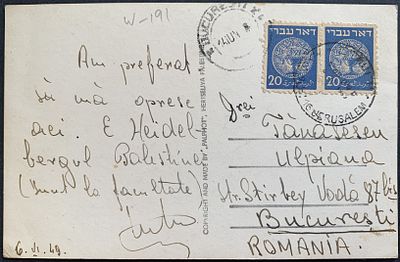 W-191
Am preferat
să mă opresc
aci E Heidel-
bergul Palestinei
(sunt la facultate)
6.VI.49.
COPYRIGHT AND MADE BY "PALPHOT", HERTSELIYA PALES
BUCURESTI
דאר עברי
דאר עברי
20
20
JERUSALEM
D-rei
Tănăsescu
Ulpiana
Str. Stirbey Vodă 87 bis
București
ROMANIA.